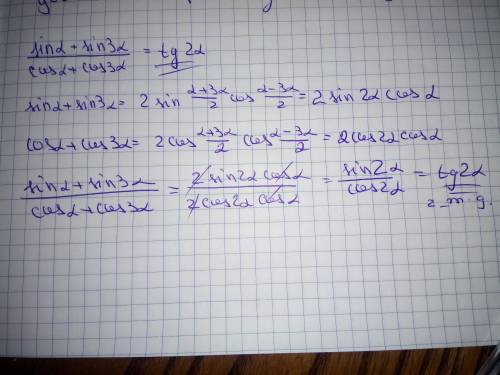 sinα + sin3α / cosα + cos3α = tg 2α
sinα + sin3α = 2 sin (α+3α)/2 cos (α-3α)/2 = 2 sin 2α cos α
cosα + cos3α = 2 cos (α+3α)/2 cos (α-3α)/2 = 2 cos2α cosα
sinα + sin3α / cosα + cos3α = 2 sin2α cosα / 2 cos2α cosα = sin2α / cos2α = tg2α
г.m.g.